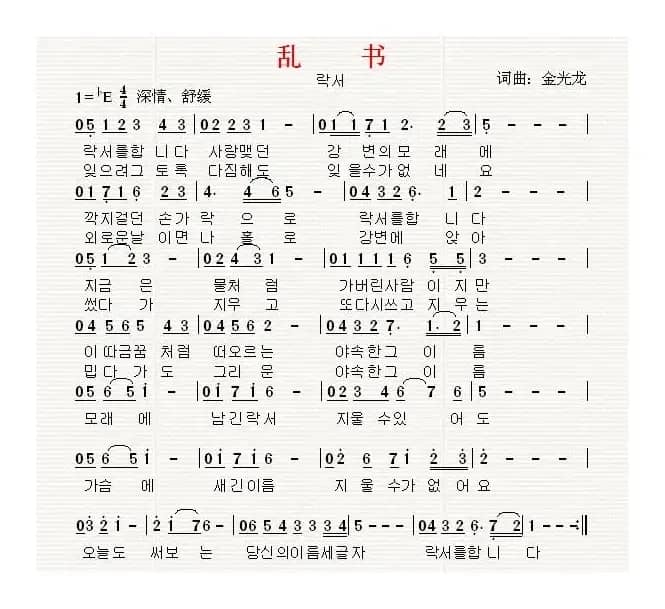 乱 书
락서
词曲：金光龙
1=♭E 4/4 深情、舒缓
05 1 2 3 4 3 | 02 2 2 3 1 - | 01 1 7 1 2. 2 3 | 5 - - - |
락서를합 니다 사랑맺던 강 변의모 래 에
잊으려그 토록 다짐해도 잊 을수가없 네 요
01 7 1 6 2 3 | 4. 4 6 5 - | 04 3 2 6. 1 | 2 - - - |
깍지걸던 손가 락 으 로 락서를합 니 다
외로운날 이면 나 홀 로 강변에 앉 아
05 1 2 3 - | 02 4 3 1 - | 01 1 1 1 6 5 5 | 3 - - - |
지금 은 물처 럼 가버린사람 이 지 만
썼다 가 지우 고 또다시쓰고 지 우 는
04 5 6 5 4 3 | 04 5 6 2 - | 04 3 2 7. 1. 2 | 1 - - - |
이 따금꿈 처럼 떠오르는 야속한그 이 름
밉 다가 도 그리 운 야속한그 이 름
05 6 5 i - | 0i 7 i 6 - | 02 3 4 6 7 6 | 5 - - - |
모래 에 남긴락서 지울 수있 어 도
05 6 5 i - | 0i 7 i 6 - | 02 6 7 i 2 3 | 2 - - - |
가슴 에 새긴이름 지 울 수가 없 어요
03 2 i - | 2 i 7 6 - | 06 5 4 3 3 3 4 | 5 - - - | 04 3 2 6. 7 2 | 1 - - :||
오늘도 써보 는 당신의이름세글자 락서를합 니 다